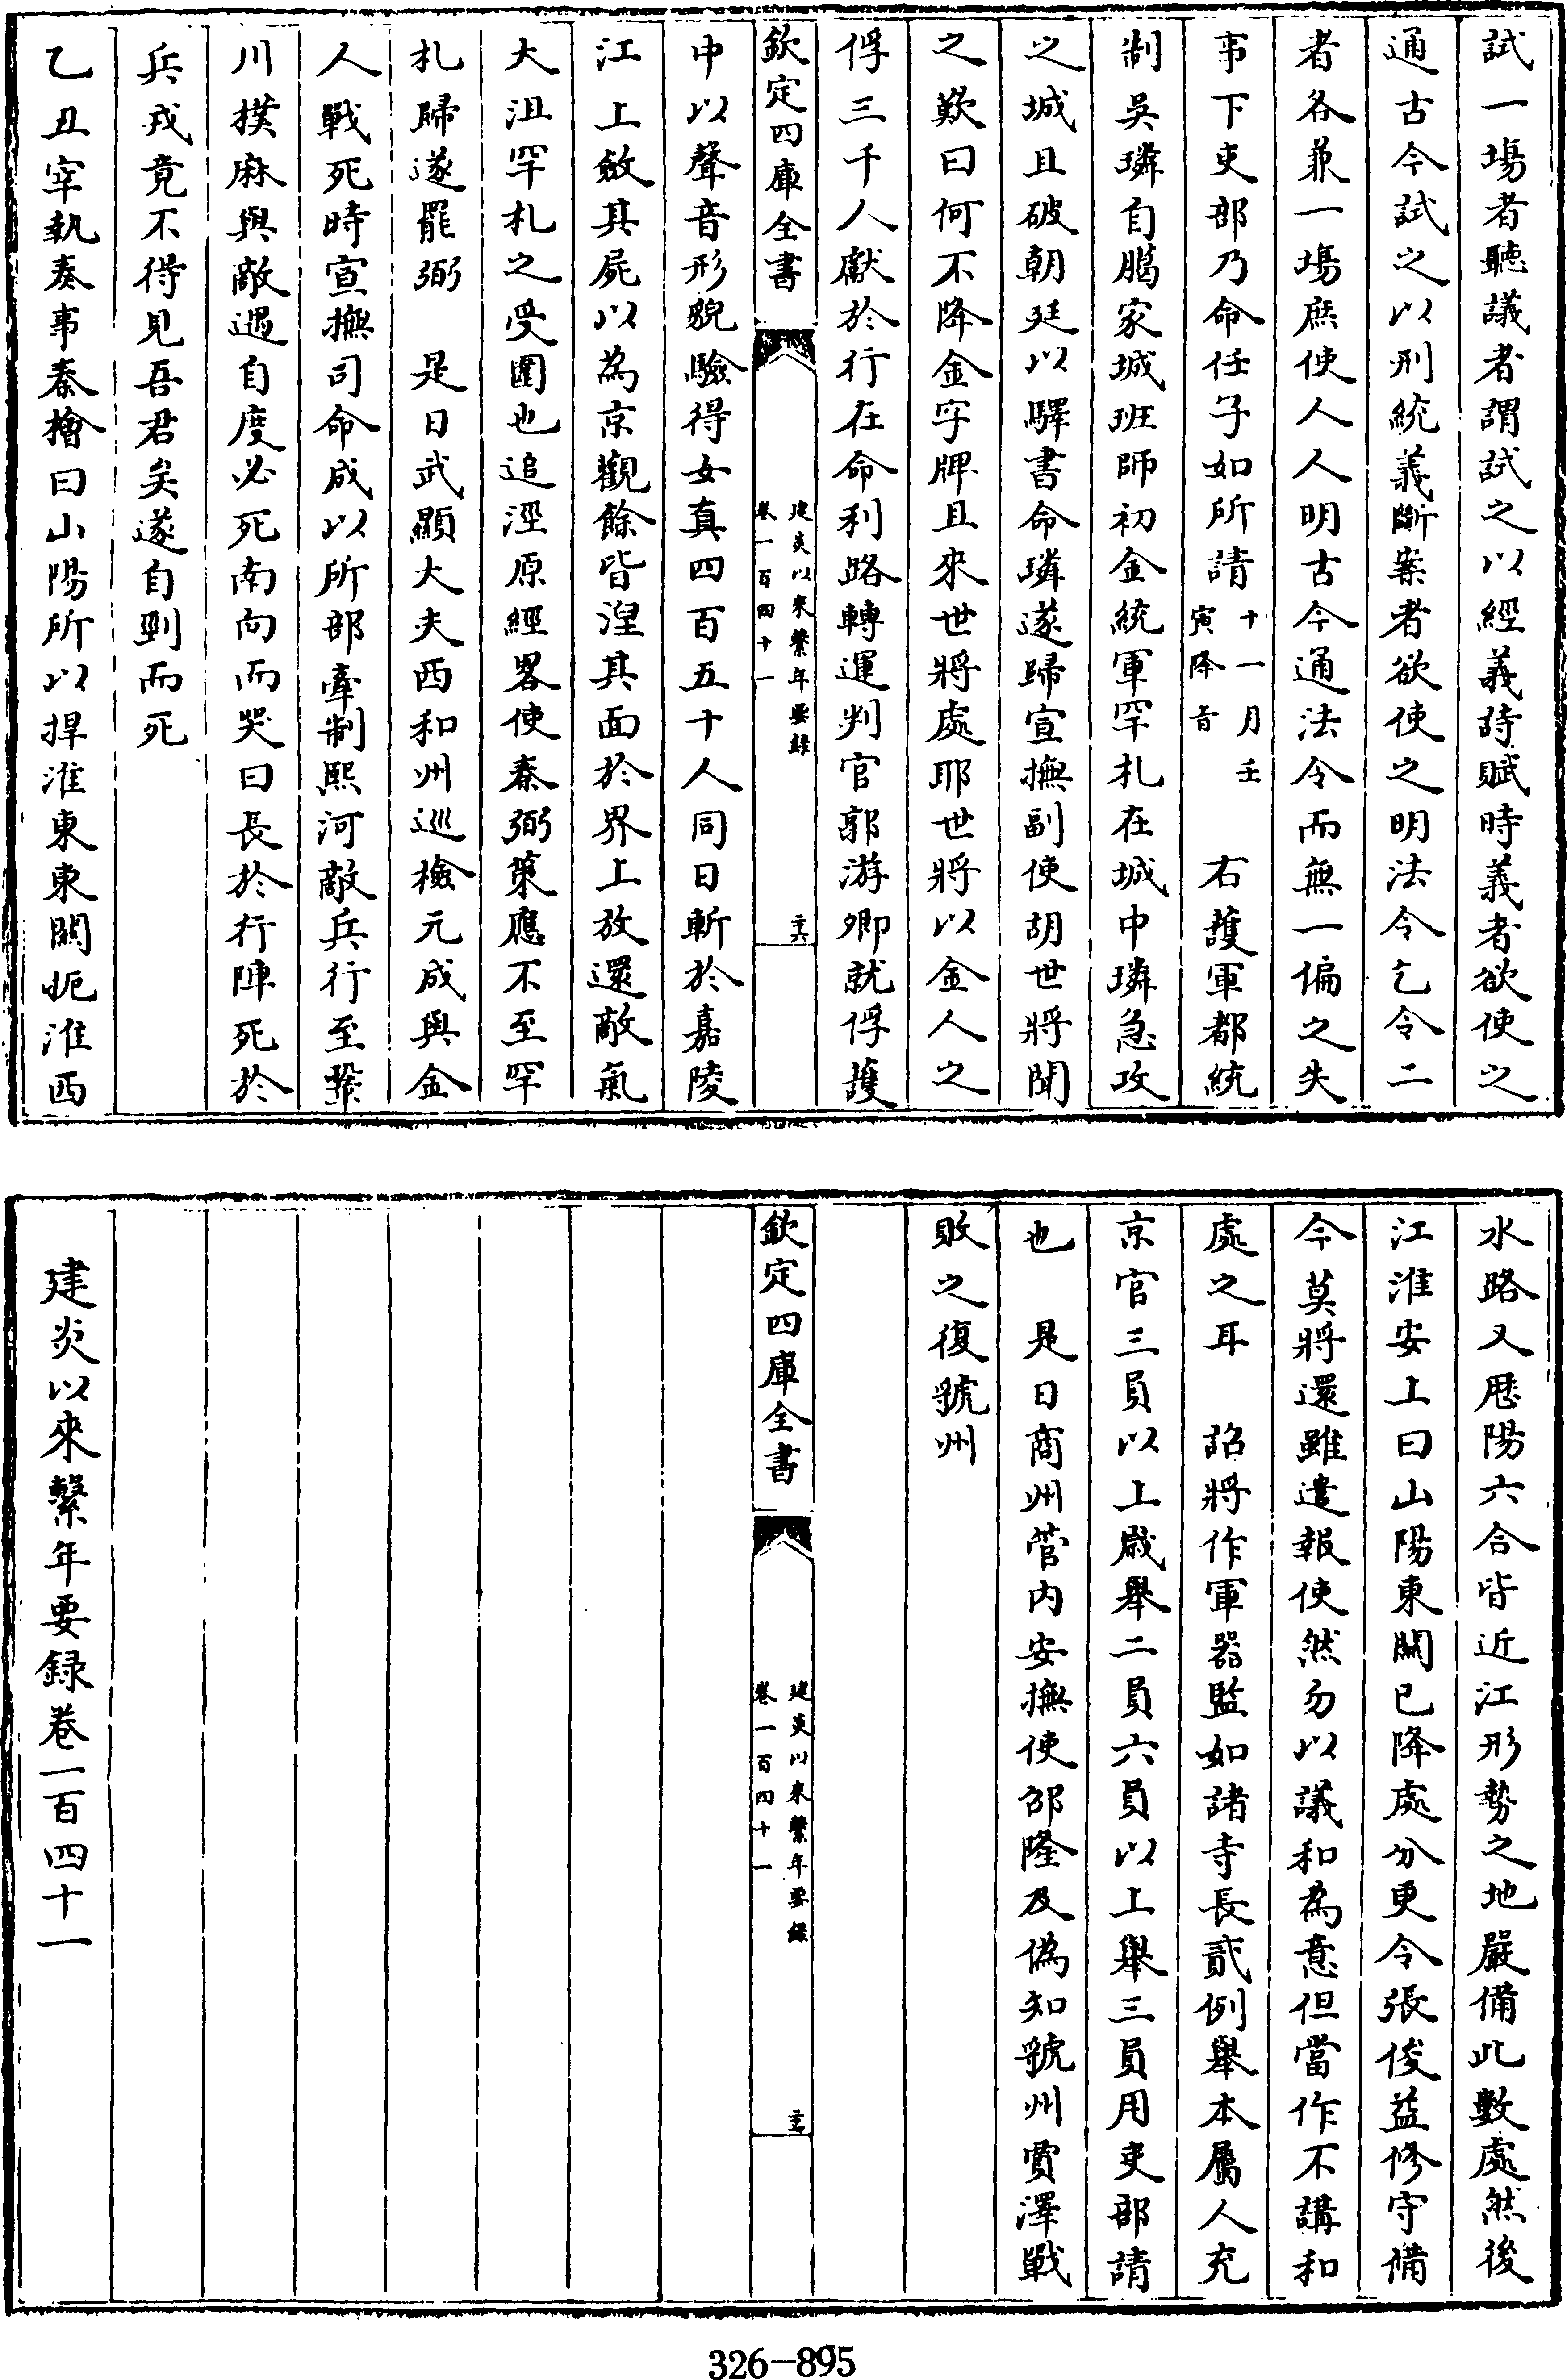 試一場者聽議者謂試之以經義詩賦時義者欲使之
通古今試之以刑統義斷案者欲使之明法令乞令二
者各兼一場庶使人人明古今通法令而無一偏之失
事下吏部乃命任子如所請十一月壬
寅降旨　右護軍都統
制吳璘自臈家城班師初金統軍罕札在城中璘急攻
之城且破朝廷以驛書命璘遂歸宣撫副使胡世將聞
之歎曰何不降金字牌且來世將處耶世將以金人之
俘三千人獻於行在命利路轉運判官郭游卿就俘護
欽定四庫全書
建炎以來繫年要錄
卷一百四十一
中以聲音形貌驗得女真四百五十人同日斬於嘉陵
江上斂其屍以為京觀餘皆涅其面於界上放還敵氣
大沮罕札之受圍也追涇原經畧使秦弼策應不至罕
札歸遂罷弼　是日武顯大夫西和州巡檢元成與金
人戰死時宣撫司命成以所部牽制熙河敵兵行至鞏
川撲麻與敵遇自度必死南向而哭曰長於行陣死於
兵戎竟不得見吾君矣遂自剄而死
乙丑宰執奏事秦檜曰山陽所以捍淮東東關扼淮西
水路又厯陽六合皆近江形勢之地嚴備此數處然後
江淮安上曰山陽東關已降處分更令張俊益修守備
今莫將還雖遣報使然勿以議和為意但當作不講和
處之耳　詔將作軍器監如諸寺長貳例舉本屬人充
京官三員以上歲舉二員六員以上舉三員用吏部請
也　是日商州管内安撫使邵隆及偽知虢州賈澤戰
敗之復虢州
欽定四庫全書
建炎以來繫年要錄
卷一百四十一
建炎以來繫年要録卷一百四十一
326-895